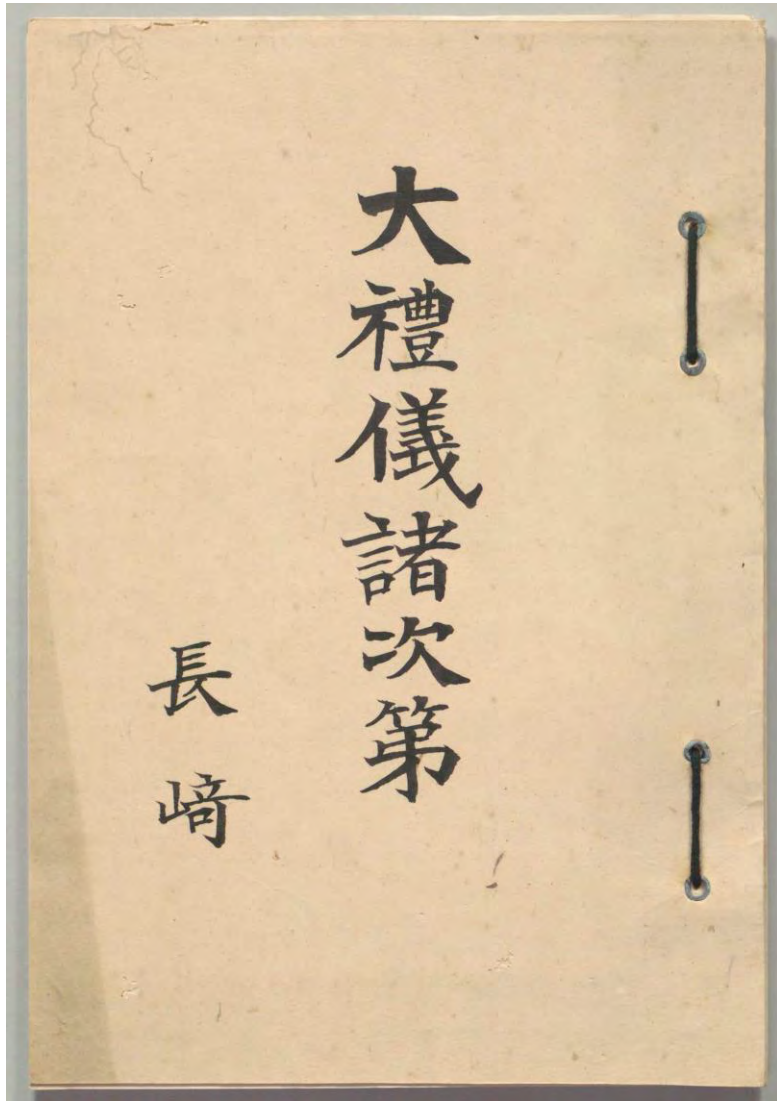 大禮儀諸次第
長﨑